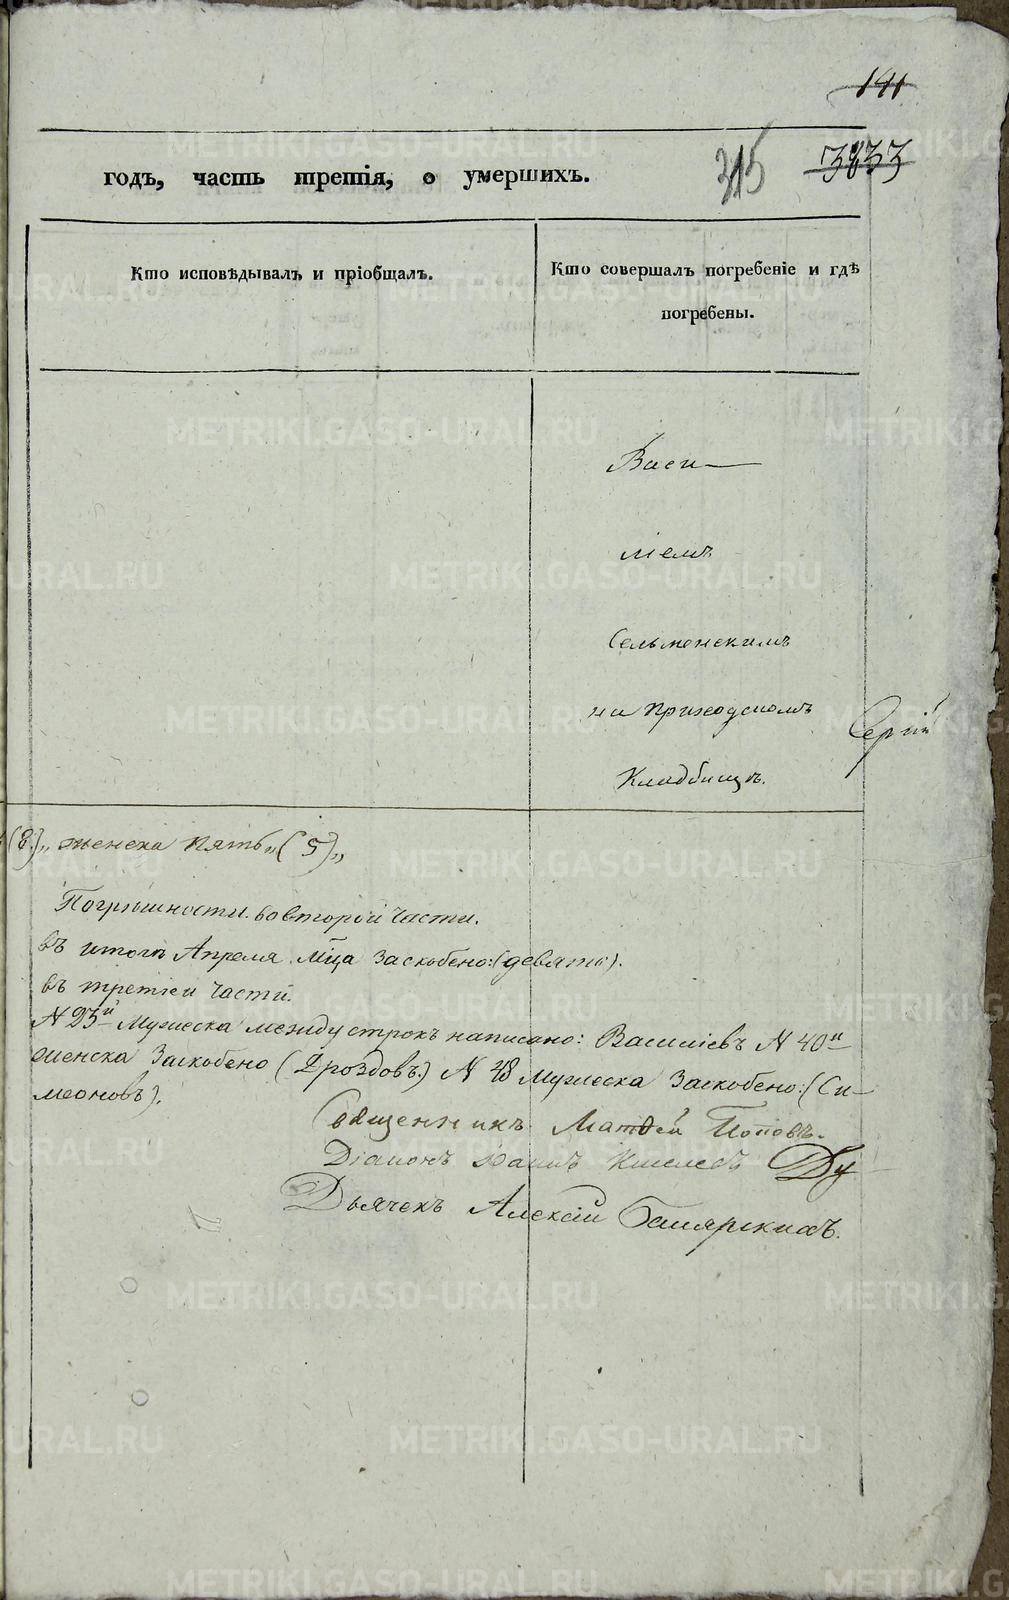 141
3833
315
годъ, часть третія, о умершихъ.
Кто исповѣдывалъ и пріобщалъ.
Кто совершалъ погребеніе и гдѣ
погребены.
Васи—
ліемъ
Сельменскимъ
на приходскомъ
Сергій
Кладбищѣ.
(8.)„ женска пять„(5)„
Погрѣшности во второй части.
въ итогѣ Апреля Мца заскобено:(девять).
въ третіей части.
N 23й Мужеска между строкъ написано: Василіевъ N 40й
женска Заскобено (Дроздовъ.) N 48 Мужеска Заскобено:(Си-
меоновъ).
Священникъ Матѳей Поповъ.
Діаконъ Киселевъ
Дьячекъ Алексій
METRIKI.GASO-URAL.RU